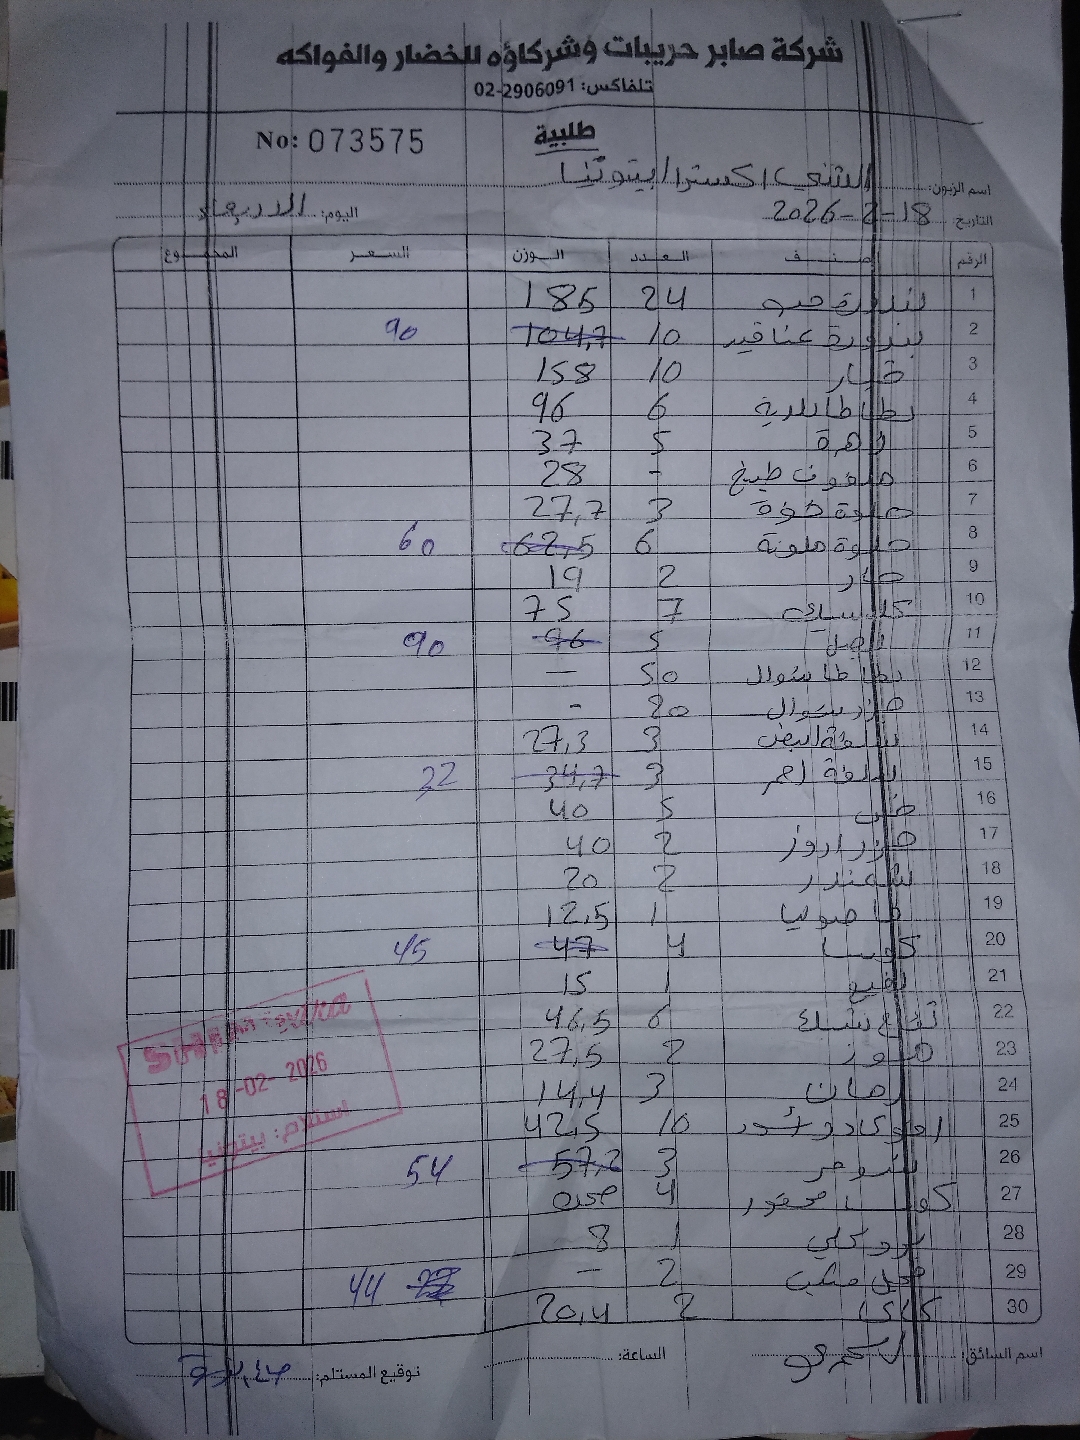 شركة صابر حريبات وشركاؤه للخضار والفواكه
تلفاكس: 02-2906091
No: 073575
طلبية
اسم الزبون: الشني اكسترا / بيتونيا
التاريخ: 18-2-2026 اليوم: الاربعاء
الرقم الصنف العدد الوزن السعر المجموع
1 بندورة حب 24 185
2 بندورة عناقيد 10 104,7 90
3 خيار 10 158
4 بطاطا بلدية 6 96
5 زهرة 5 37
6 ملفوف طبخ - 28
7 حلوة 3 27,7
8 حلوة ملونة 6 62,5 60
9 حار 2 19
10 7 75
11 بصل 5 96 90
12 بطاطا شوال 50 —
13 جزر شوال 20 -
14 3 27,3
15 احمر 3 34,7 32
16 خس 5 40
17 جزر اروز 2 40
18 شمندر 2 20
19 فاصوليا 1 12,5
20 كوسا 4 47 45
21 1 15
22 6 46,5
23 موز 2 27,5
24 رمان 3 14,4
25 افوكادو 10 42,5
26 3 57,2 54
27 كوسا محفور 4
28 بروكلي 1 8
29 فجل 2 — 44
30 كاكا 2 20,4
SHINI extra
18-02-2026
استلام: بيتونيا
اسم السائق: الساعة: توقيع المستلم: